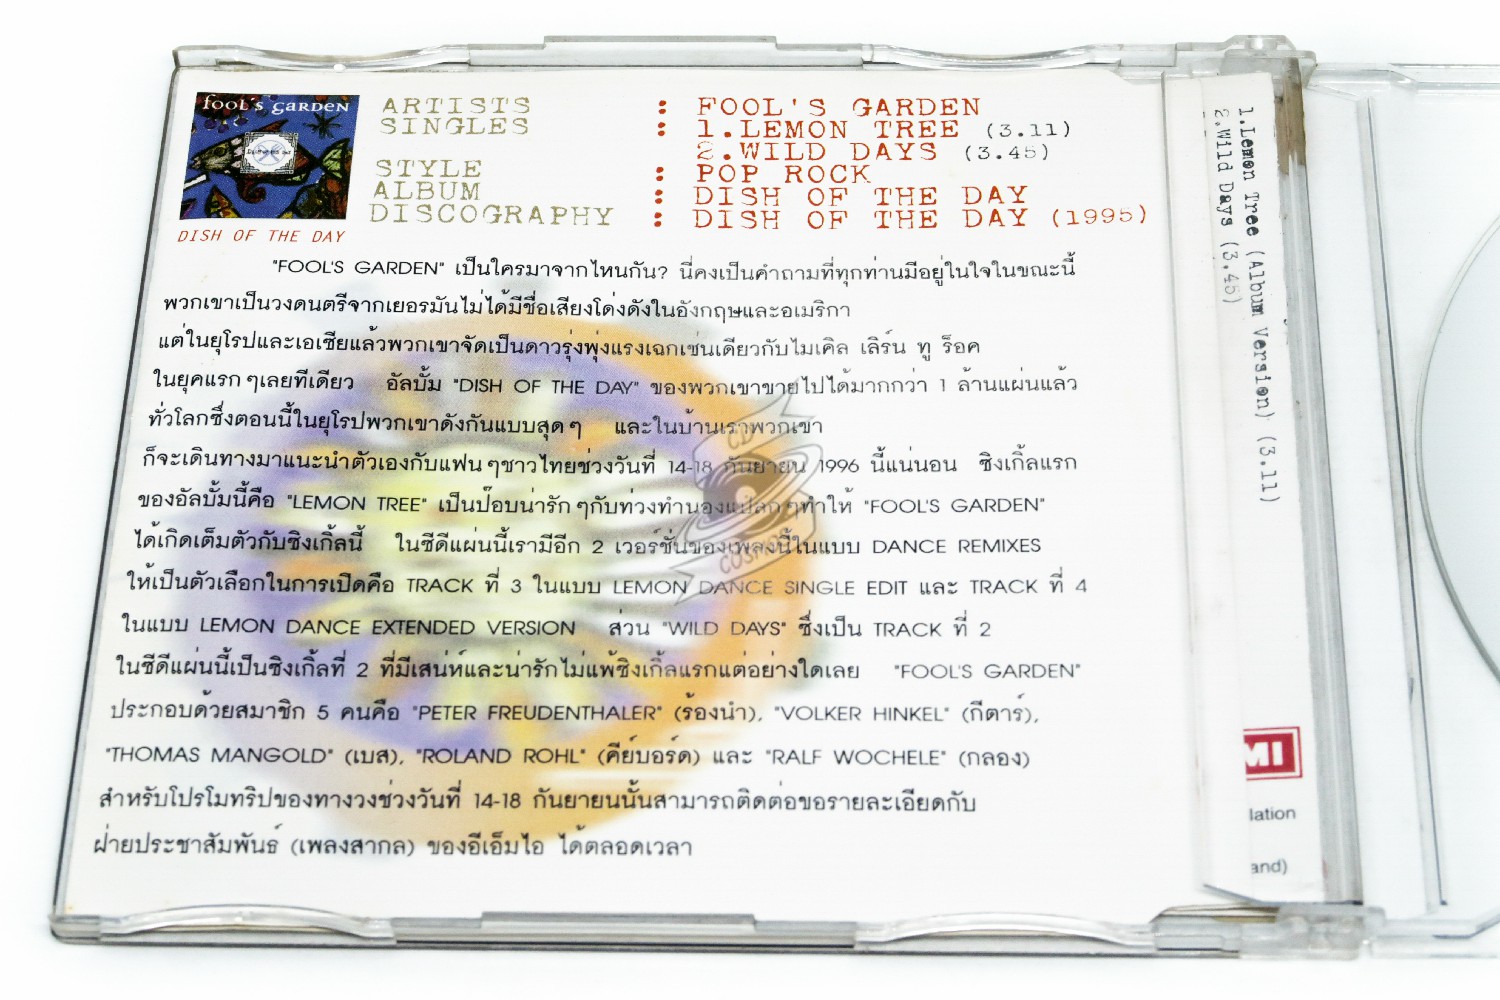 fool's garden
DISH OF THE DAY
ARTISTS : FOOL'S GARDEN
SINGLES : 1.LEMON TREE (3.11)
2.WILD DAYS (3.45)
STYLE : POP ROCK
ALBUM : DISH OF THE DAY
DISCOGRAPHY : DISH OF THE DAY (1995)
"FOOL'S GARDEN" เป็นใครมาจากไหนกัน? นี่คงเป็นคำถามที่ทุกท่านมีอยู่ในใจในขณะนี้
พวกเขาเป็นวงดนตรีจากเยอรมันไม่ได้มีชื่อเสียงโด่งดังในอังกฤษและอเมริกา
แต่ในยุโรปและเอเซียแล้วพวกเขาจัดเป็นดาวรุ่งพุ่งแรงเฉกเช่นเดียวกับไมเคิล เลิร์น ทู ร็อค
ในยุคแรก ๆเลยทีเดียว อัลบั้ม "DISH OF THE DAY" ของพวกเขาขายไปได้มากกว่า 1 ล้านแผ่นแล้ว
ทั่วโลกซึ่งตอนนี้ในยุโรปพวกเขาดังกันแบบสุด ๆ และในบ้านเราพวกเขา
ก็จะเดินทางมาแนะนำตัวเองกับแฟน ๆชาวไทยช่วงวันที่ 14-18 กันยายน 1996 นี้แน่นอน ซิงเกิ้ลแรก
ของอัลบั้มนี้คือ "LEMON TREE" เป็นป๊อบน่ารัก ๆกับท่วงทำนองแปลก ๆทำให้ "FOOL'S GARDEN"
ได้เกิดเต็มตัวกับซิงเกิ้ลนี้ ในซีดีแผ่นนี้เรามีอีก 2 เวอร์ชั่นของเพลงนี้ในแบบ DANCE REMIXES
ให้เป็นตัวเลือกในการเปิดคือ TRACK ที่ 3 ในแบบ LEMON DANCE SINGLE EDIT และ TRACK ที่ 4
ในแบบ LEMON DANCE EXTENDED VERSION ส่วน "WILD DAYS" ซึ่งเป็น TRACK ที่ 2
ในซีดีแผ่นนี้เป็นซิงเกิ้ลที่ 2 ที่มีเสน่ห์และน่ารักไม่แพ้ซิงเกิ้ลแรกแต่อย่างใดเลย "FOOL'S GARDEN"
ประกอบด้วยสมาชิก 5 คนคือ "PETER FREUDENTHALER" (ร้องนำ), "VOLKER HINKEL" (กีตาร์),
"THOMAS MANGOLD" (เบส), "ROLAND ROHL" (คีย์บอร์ด) และ "RALF WOCHELE" (กลอง)
สำหรับโปรโมทริปของทางวงช่วงวันที่ 14-18 กันยายนนั้นสามารถติดต่อขอรายละเอียดกับ
ฝ่ายประชาสัมพันธ์ (เพลงสากล) ของอีเอ็มไอ ได้ตลอดเวลา
CD
COSMOS
1.Lemon Tree (Album Version) (3.11)
2.Wild Days (3.45)
MI
lation
and)